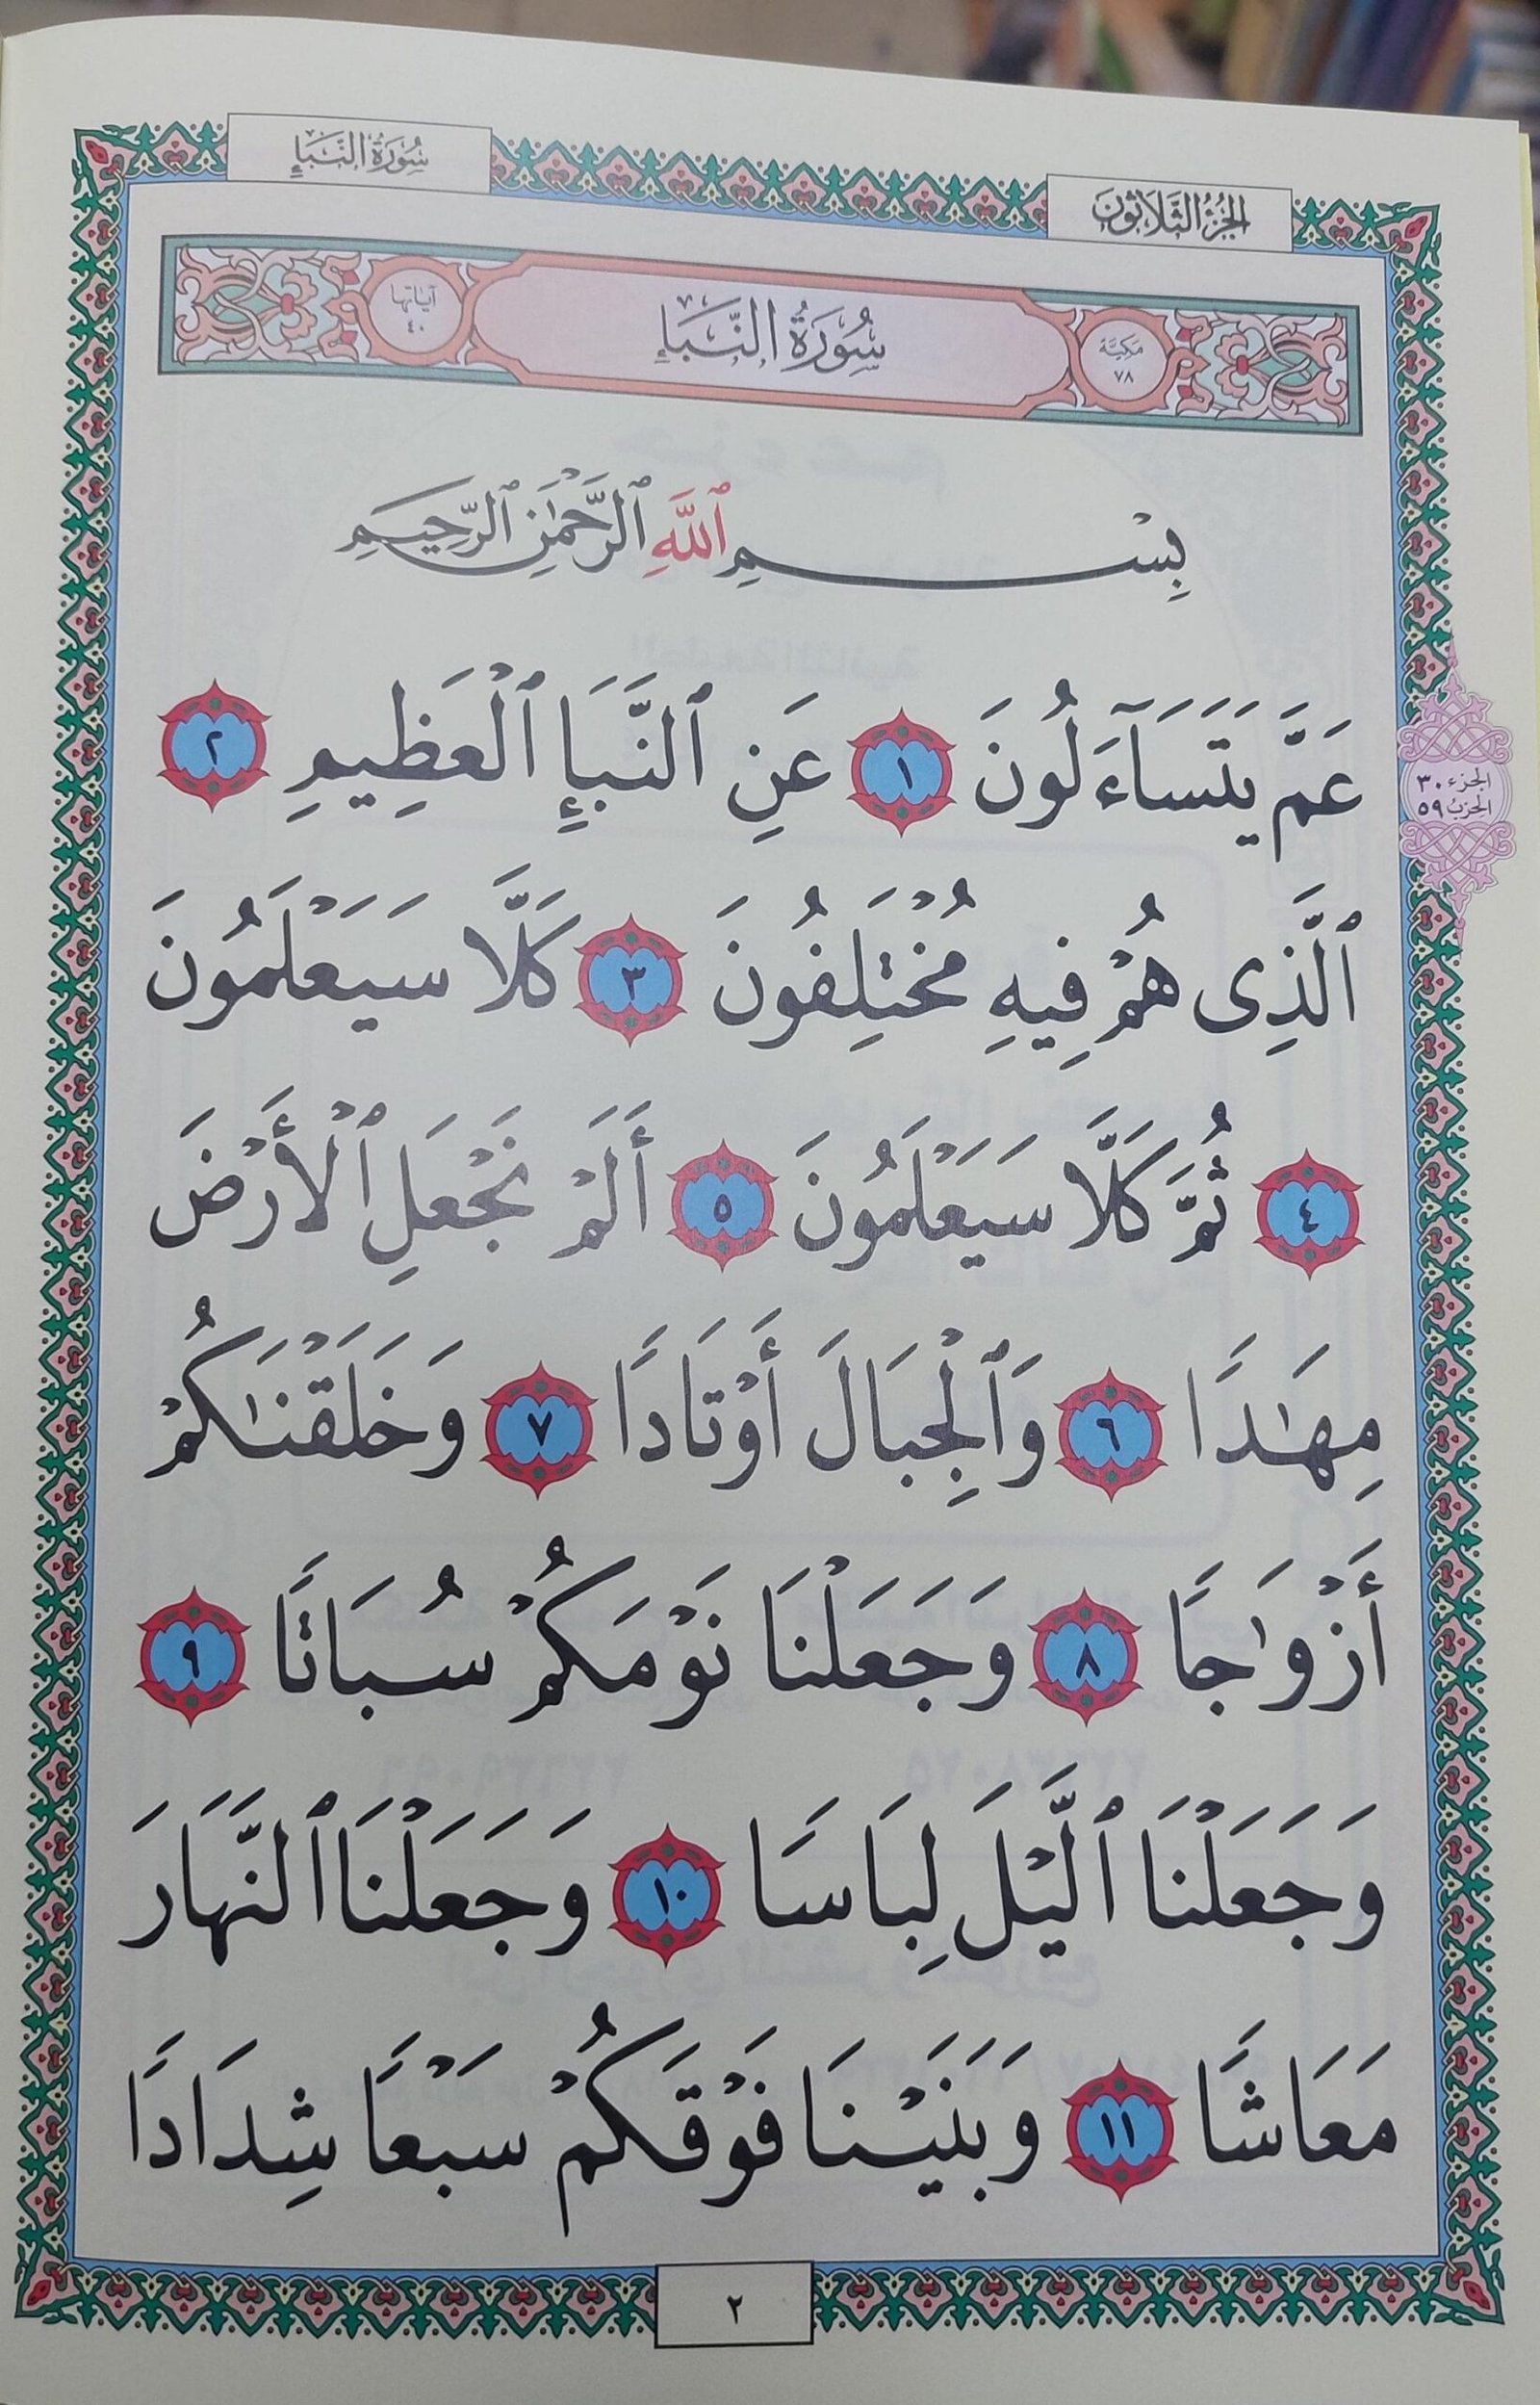 الجزء الثلاثون
سورة النبإ
مكية
٧٨
سُورَةُ النَّبَإِ
آياتها
٤٠
بِسْمِ ٱللَّهِ ٱلرَّحْمَٰنِ ٱلرَّحِيمِ
عَمَّ يَتَسَآءَلُونَ ١ عَنِ ٱلنَّبَإِ ٱلْعَظِيمِ ٢
ٱلَّذِى هُمْ فِيهِ مُخْتَلِفُونَ ٣ كَلَّا سَيَعْلَمُونَ
٤ ثُمَّ كَلَّا سَيَعْلَمُونَ ٥ أَلَمْ نَجْعَلِ ٱلْأَرْضَ
مِهَٰدًا ٦ وَٱلْجِبَالَ أَوْتَادًا ٧ وَخَلَقْنَٰكُمْ
أَزْوَٰجًا ٨ وَجَعَلْنَا نَوْمَكُمْ سُبَاتًا ٩
وَجَعَلْنَا ٱلَّيْلَ لِبَاسًا ١٠ وَجَعَلْنَا ٱلنَّهَارَ
مَعَاشًا ١١ وَبَنَيْنَا فَوْقَكُمْ سَبْعًا شِدَادًا
الجزء ٣٠
الحزب ٥٩
٢